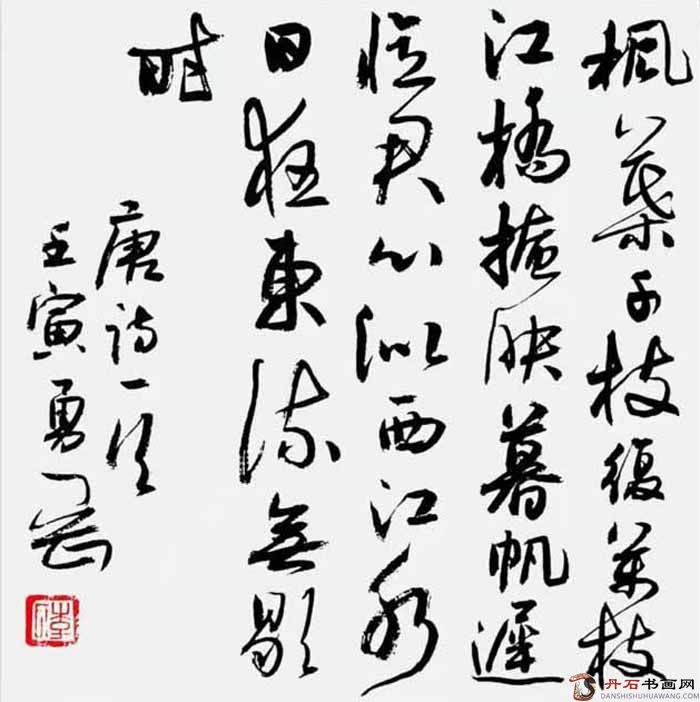 楓葉千枝復萬枝
江橋掩映暮帆遲
憶君心似西江水
日夜東流無歇
時
唐詩一首
壬寅勇
丹石书画网
DANSHISHUHUAWANG.COM